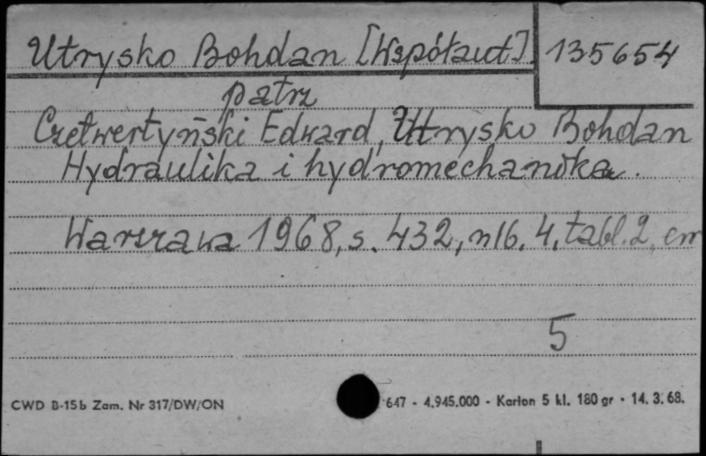 Utrysko Bohdan [Współaut]. 135654
patrz
Czetwertyński Edward, Utrysko Bohdan
Hydraulika i hydromechanika.
Warszawa 1968, s. 432, nlb. 4, tabl. 2, cm
5
CWD B-15b Zam. Nr 317/DW/ON 647 - 4.945.000 - Karton 5 kl. 180 gr - 14. 3. 68.